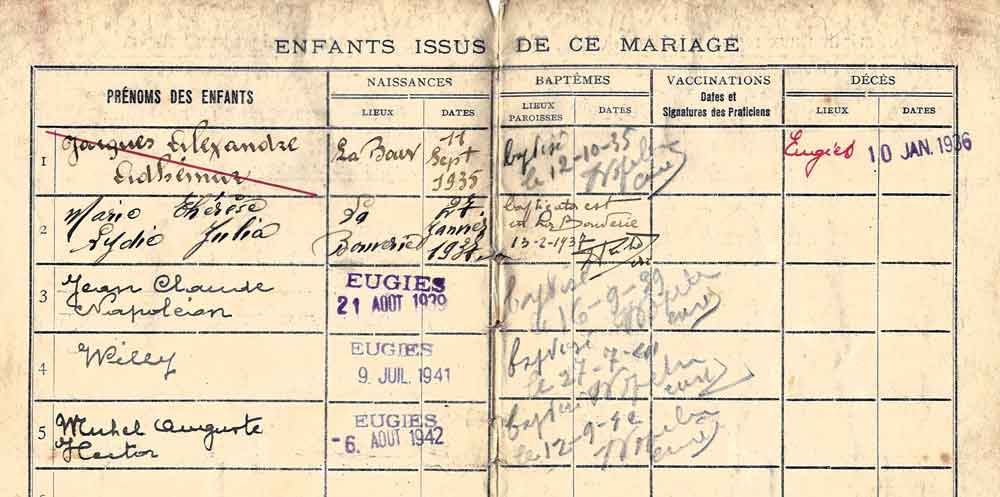 ENFANTS ISSUS DE CE MARIAGE
PRÉNOMS DES ENFANTS
NAISSANCES
BAPTÊMES
VACCINATIONS
Dates et
Signatures des Praticiens
DÉCÈS
LIEUX
DATES
LIEUX
PAROISSES
DATES
LIEUX
DATES
1
Jacques Alexandre
La Bouv
11
Sept
1935
baptisé
le 12-10-35
curé
Eugies
10 JAN. 1936
2
Marie Thérèse
Lydie Julia
La
Bouverie
27
Janvier
1937
baptizata est
in La Bouverie
13-2-1937
3
Jean Claude
Napoléon
EUGIES
21 AOUT 1939
baptisé
le 16-9-39
curé
4
Willy
EUGIES
9. JUIL. 1941
baptisé
le 27-7-41
curé
5
Michel Auguste
Hector
EUGIES
-6. AOUT 1942
baptisé
le 12-9-42
curé